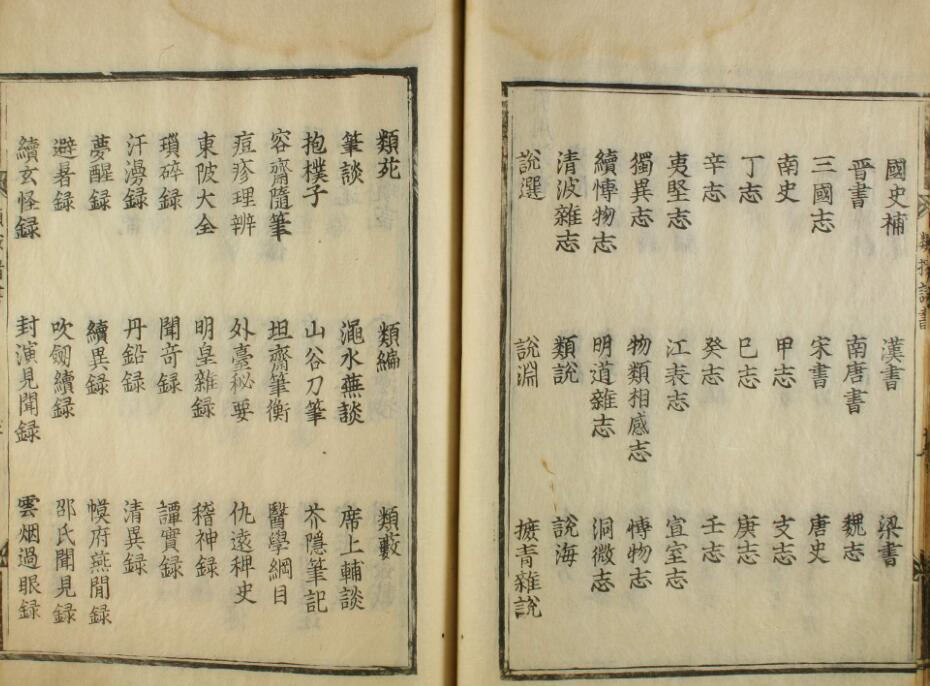 國史補 漢書 梁書
晉書 南唐書 魏志
三國志 宋書 唐史
南史 甲志 支志
丁志 巳志 庚志
辛志 癸志 壬志
夷堅志 江表志 宣室志
獨異志 物類相感志 博物志
續博物志 明道雜志 洞微志
清波雜志 類說 說海
說選 說淵 摭青雜說
類苑 類編 類藪
筆談 澠水燕談 席上輔談
抱樸子 山谷刀筆 芥隱筆記
容齋隨筆 坦齋筆衡 醫學綱目
痘疹理辨 外臺秘要 仇遠稗史
東陂大全 明皇雜録 稽神録
瑣碎録 聞竒録 譚實録
汗澷録 丹鉛録 清異録
夢醒録 續異録 幙府燕閒録
避暑録 吹劒續録 邵氏聞見録
續玄怪録 封演見聞録 雲烟過眼録